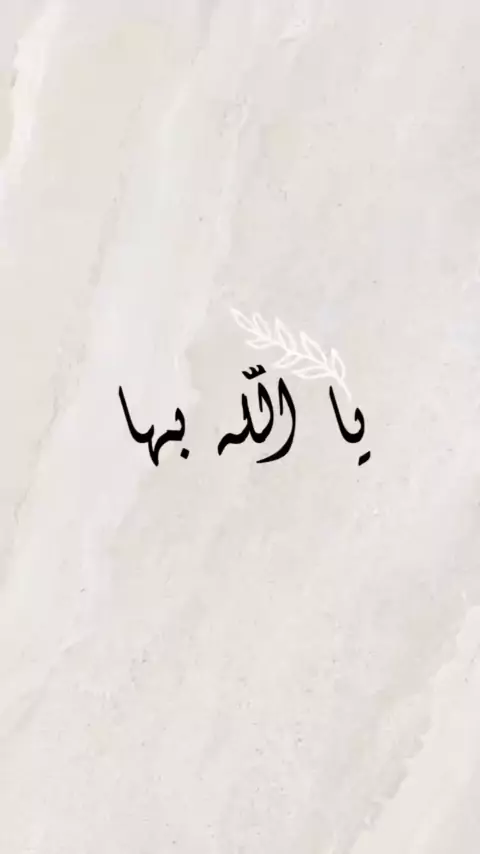 يا اللّه بها